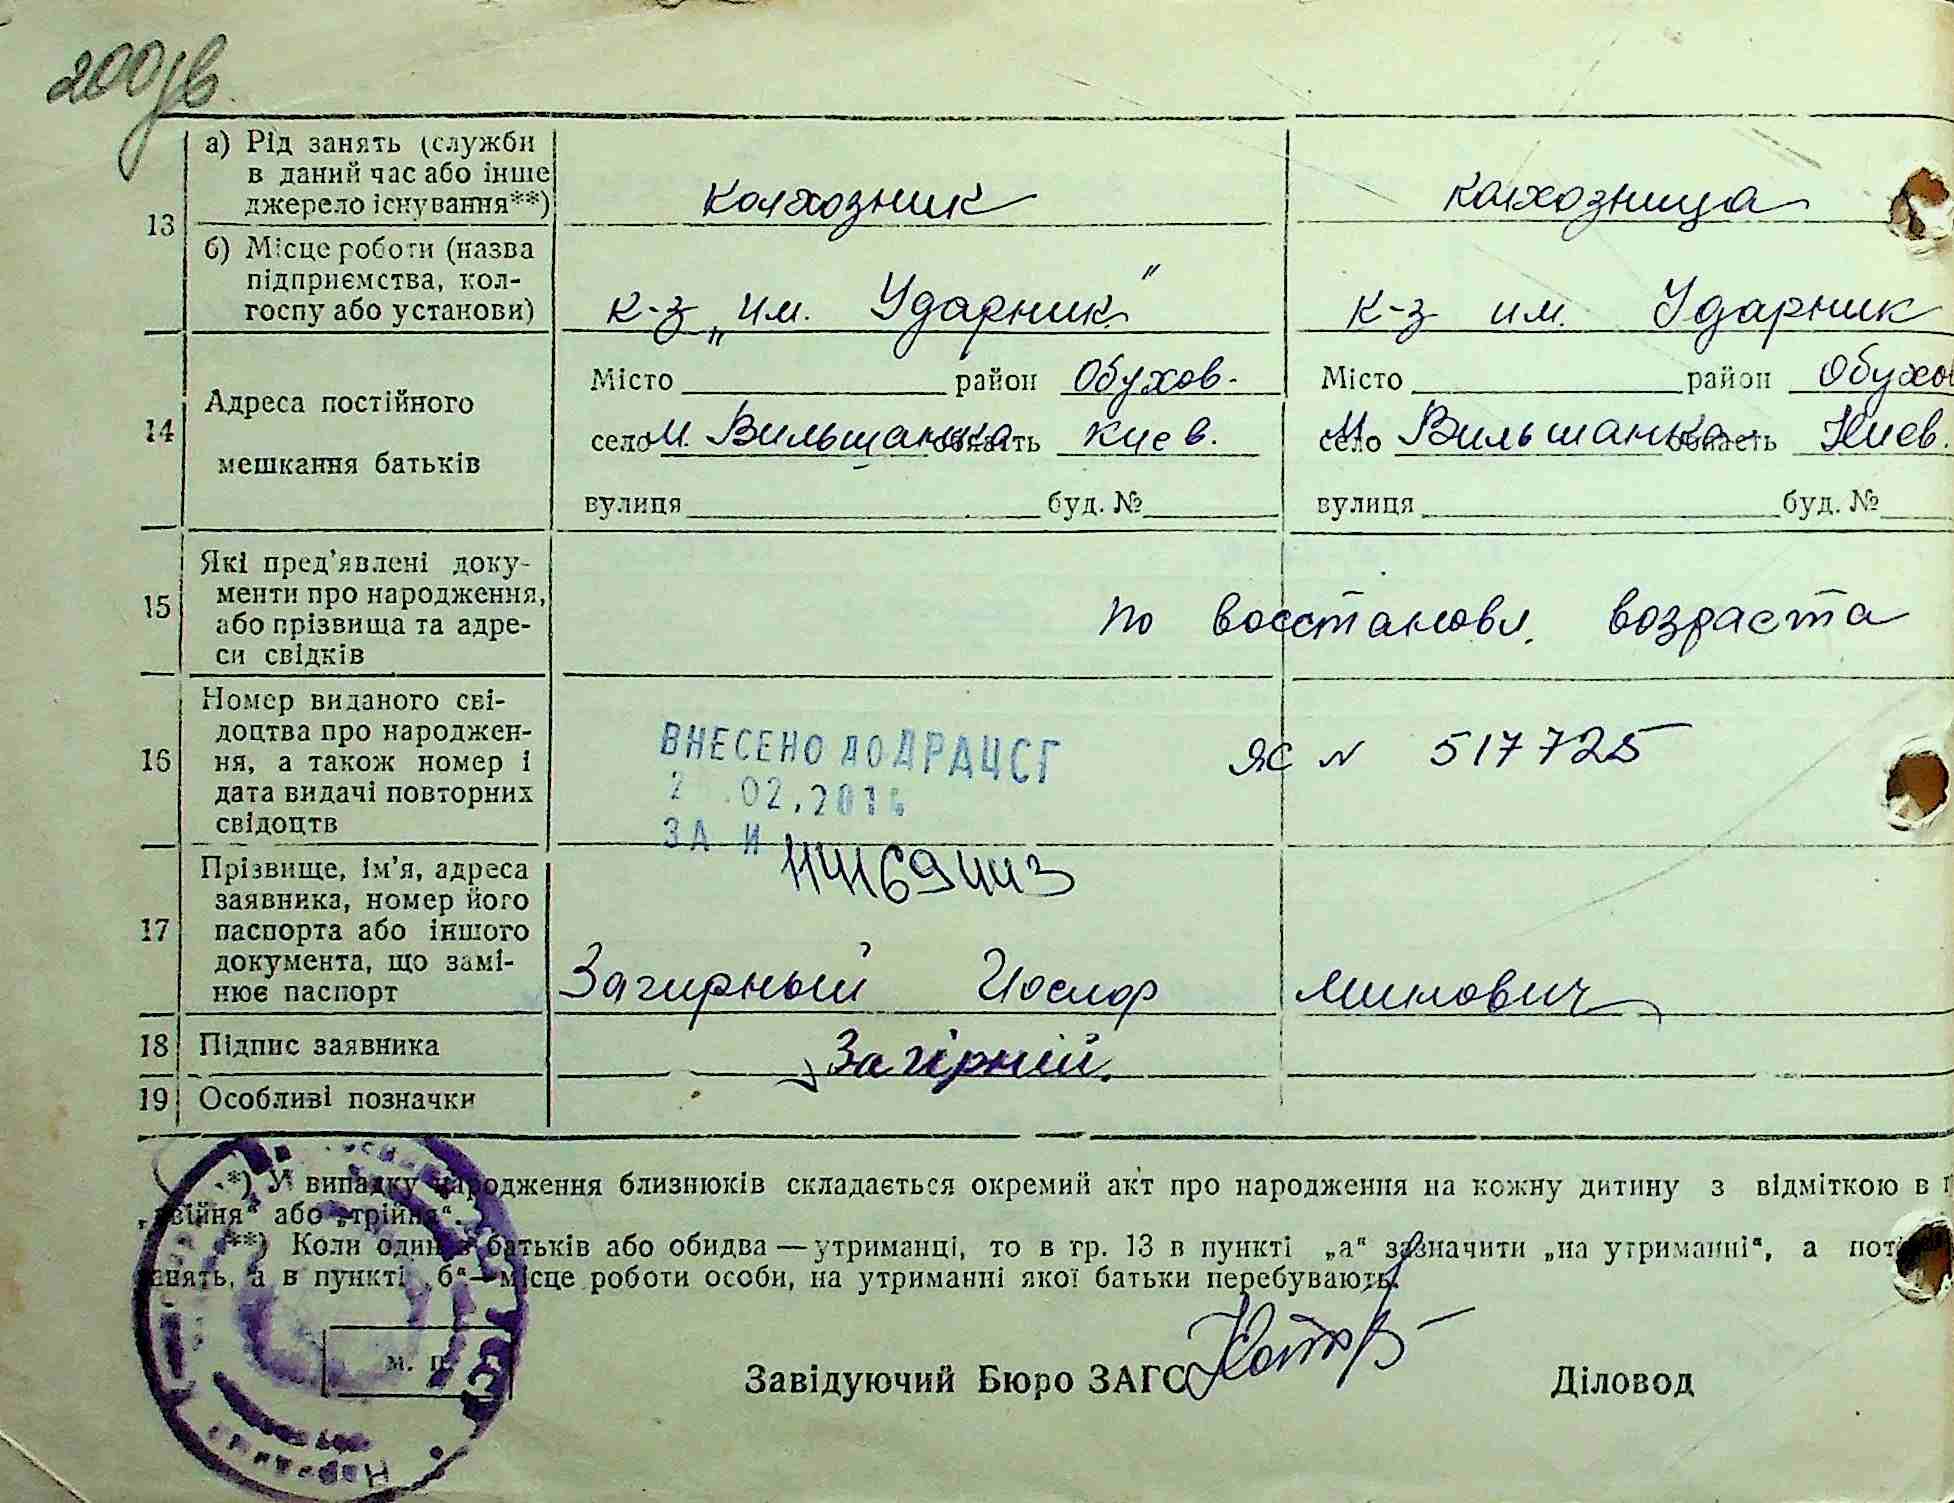 200
13
а) Рід занять (служби
в даний час або інше
джерело існування**)
колхозник
колхозница
б) Місце роботи (назва
підприємства, кол-
госпу або установи)
к-з „им. Ударник"
к-з им. Ударник
14
Адреса постійного
мешкання батьків
Місто район Обухов.
село М. Вильшанка область Киев.
вулиця буд. №
Місто район Обухов
село М. Вильшанка область Киев.
вулиця буд. №
15
Які пред'явлені доку-
менти про народження,
або прізвища та адре-
си свідків
по восстановл. возраста
16
Номер виданого сві-
доцтва про народжен-
ня, а також номер і
дата видачі повторних
свідоцтв
ВНЕСЕНО ДО ДРАЦСГ
2 .02.201
ЗА №
ЯС № 517725
17
Прізвище, ім'я, адреса
заявника, номер його
паспорта або іншого
документа, що замі-
нює паспорт
Загирный Минович
18
Підпис заявника
Загірній.
19
Особливі позначки
*) У випадку народження близнюків складається окремий акт про народження на кожну дитину з відміткою в г
„двійня“ або „трійня“.
**) Коли один з батьків або обидва — утриманці, то в гр. 13 в пункті „а“ зазначити „на утриманні“, а пот
занять, а в пункті „б“ — місце роботи особи, на утриманні якої батьки перебувають.
м. п.
Завідуючий Бюро ЗАГС
Діловод